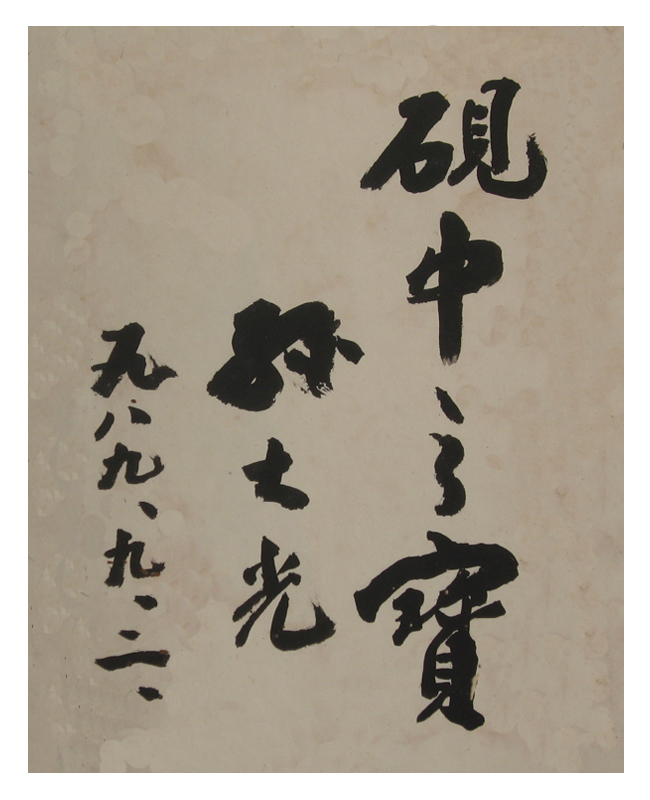 硯中之寶
孫大光
一九八九、九、二、